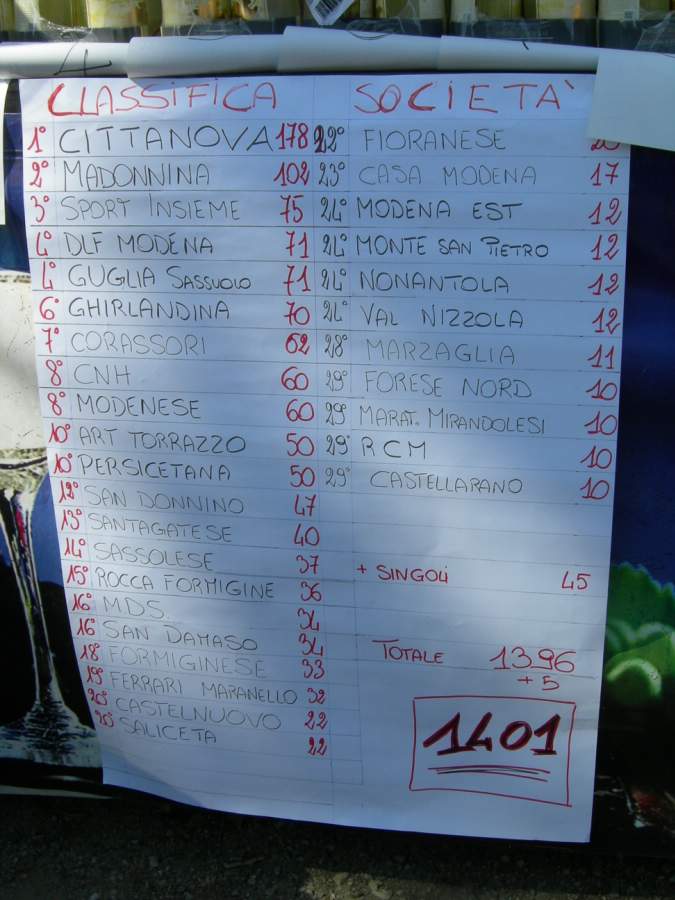 CLASSIFICA SOCIETÀ
1° CITTANOVA 178
2° MADONNINA 102
3° SPORT INSIEME 75
4° DLF MODENA 71
4° GUGLIA SASSUOLO 71
6° GHIRLANDINA 70
7° CORASSORI 62
8° CNH 60
8° MODENESE 60
10° ART TORRAZZO 50
10° PERSICETANA 50
12° SAN DONNINO 47
13° SANTAGATESE 40
14° SASSOLESE 37
15° ROCCA FORMIGINE 36
16° M.D.S. 34
16° SAN DAMASO 34
18° FORMIGINESE 33
19° FERRARI MARANELLO 32
20° CASTELNUOVO 22
20° SALICETA 22
22° FIORANESE
23° CASA MODENA 17
24° MODENA EST 12
24° MONTE SAN PIETRO 12
24° NONANTOLA 12
24° VAL NIZZOLA 12
28° MARZAGLIA 11
29° FORESE NORD 10
29° MARAT. MIRANDOLESI 10
29° RCM 10
29° CASTELLARANO 10
+ SINGOLI 45
TOTALE 1396
+ 5
1401